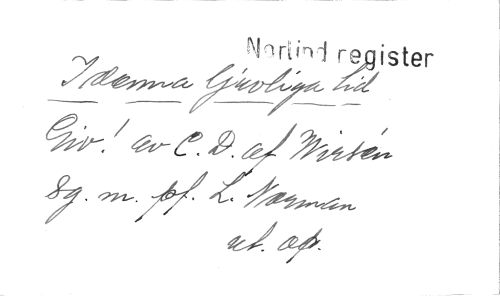 Norlind register
I denna ljuvliga tid
Giv! av C. D. af Wirsén
Sg. m. pf. L. Norman
ut. op.